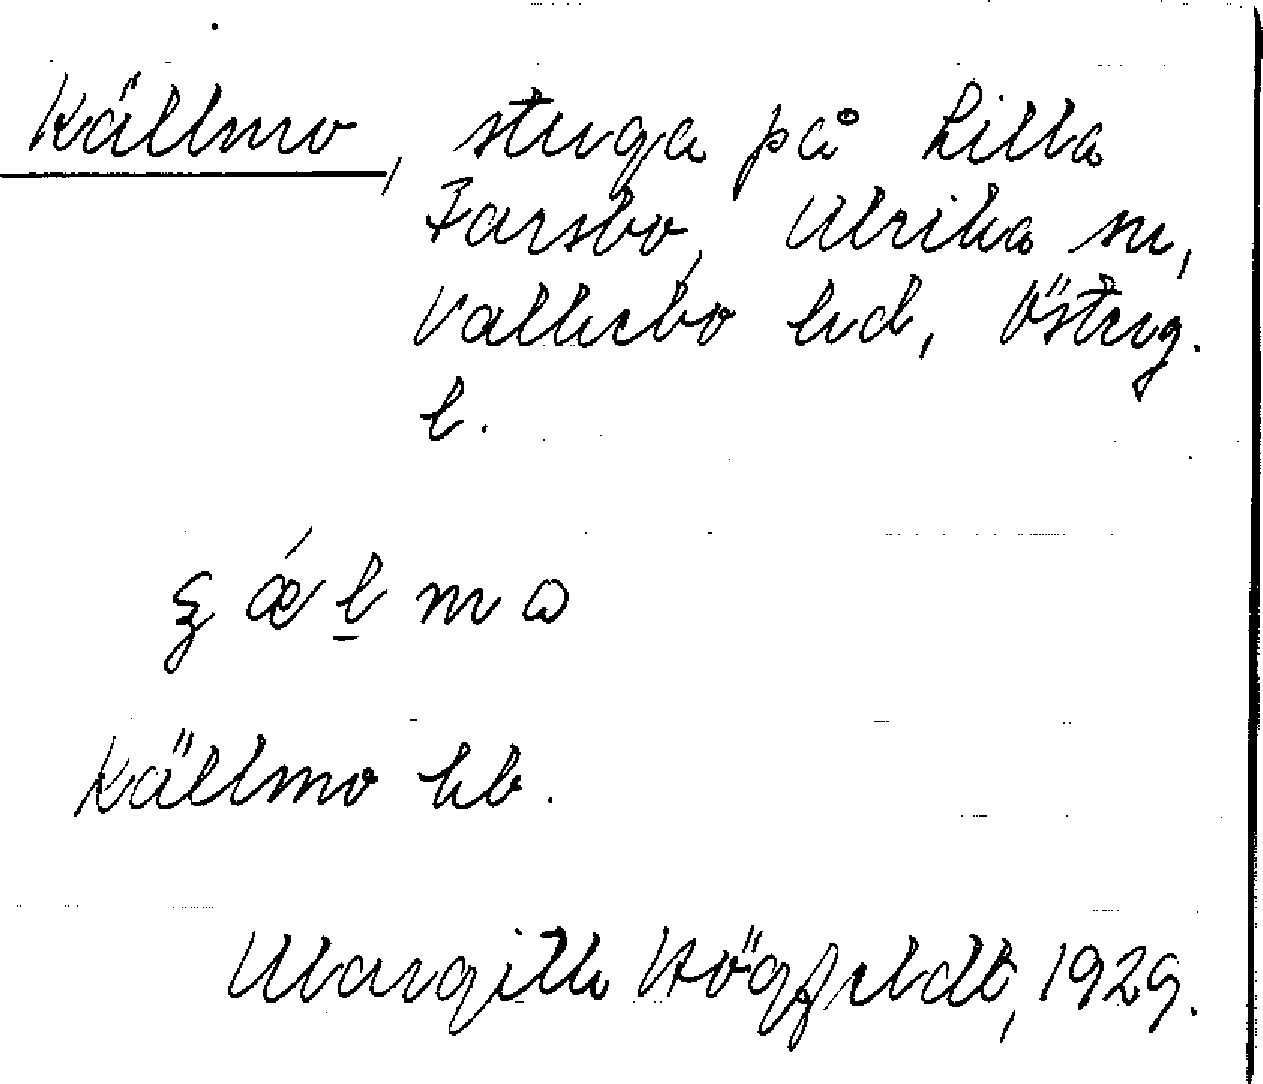 Källmo, stuga på Lilla
Farsbo, Ulrika sn,
Vallerbo hd, Östrg.
l.
ʒ ǽ l̲ m ω
Källmo hb.
Margith Högfeldt, 1929.